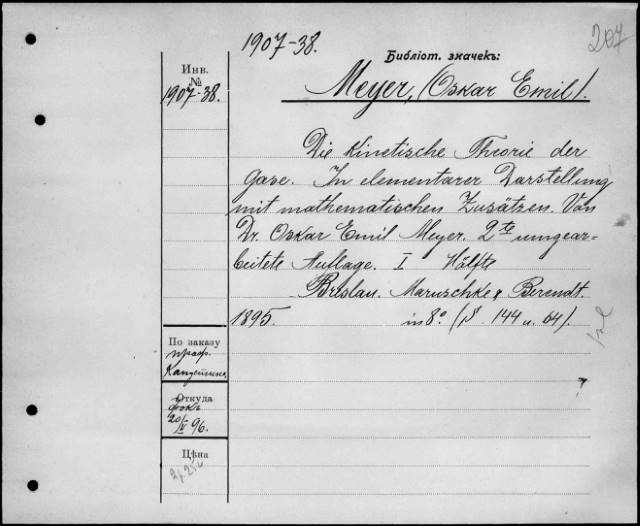 1907-38.
207
Инв.
№
1907-38.
Библіот. значекъ:
Meyer, (Oskar Emil).
Die kinetische Theorie der
Gase. In elementarer Darstellung
mit mathematischen Zusätsen. Von
Dr. Oskar Emil Meyer. 2te umgear-
beitete Auflage. I Hälfte
Breslau. Maruschke & Berendt.
1895. in 8º. (S. 144 u. 64).
По заказу
проф.
Откуда
20/IV 96.
Цѣна